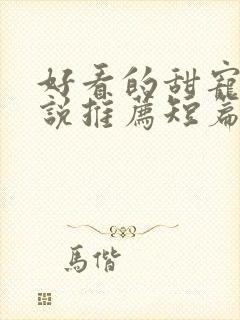 好看的甜寵
說推薦短篇
馬偕